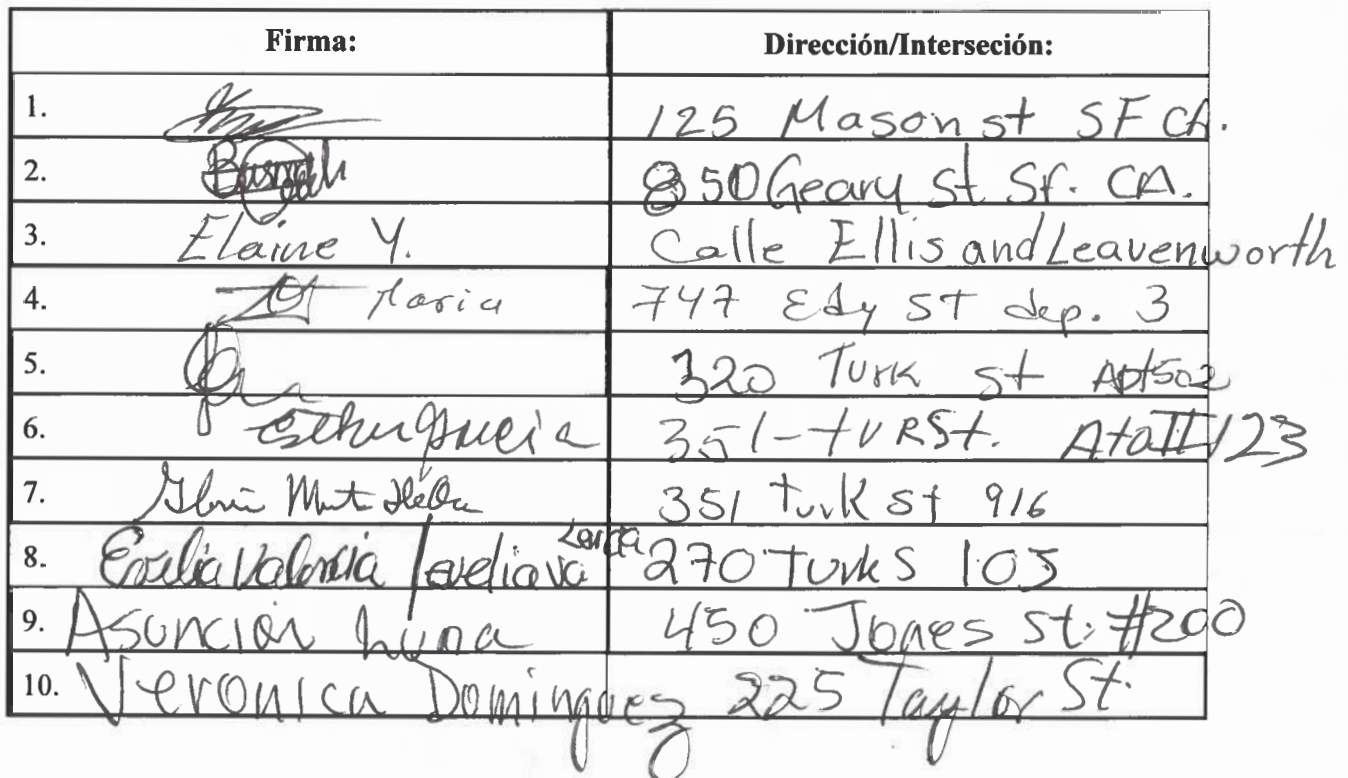 Firma: Dirección/Interseción:
1. 125 Mason st SF CA.
2. 850 Geary St. Sf. CA.
3. Elaine Y. Calle Ellis and Leavenworth
4. Maria 747 Edy ST dep. 3
5. 320 Turk st Apt502
6. 351-turSt. 123
7. 351 turk st 916
8. Evelia Valencia 270 Turk S 105
9. Asuncion Luna 450 Jones st. #200
10. Veronica Dominguez 225 Taylor St.